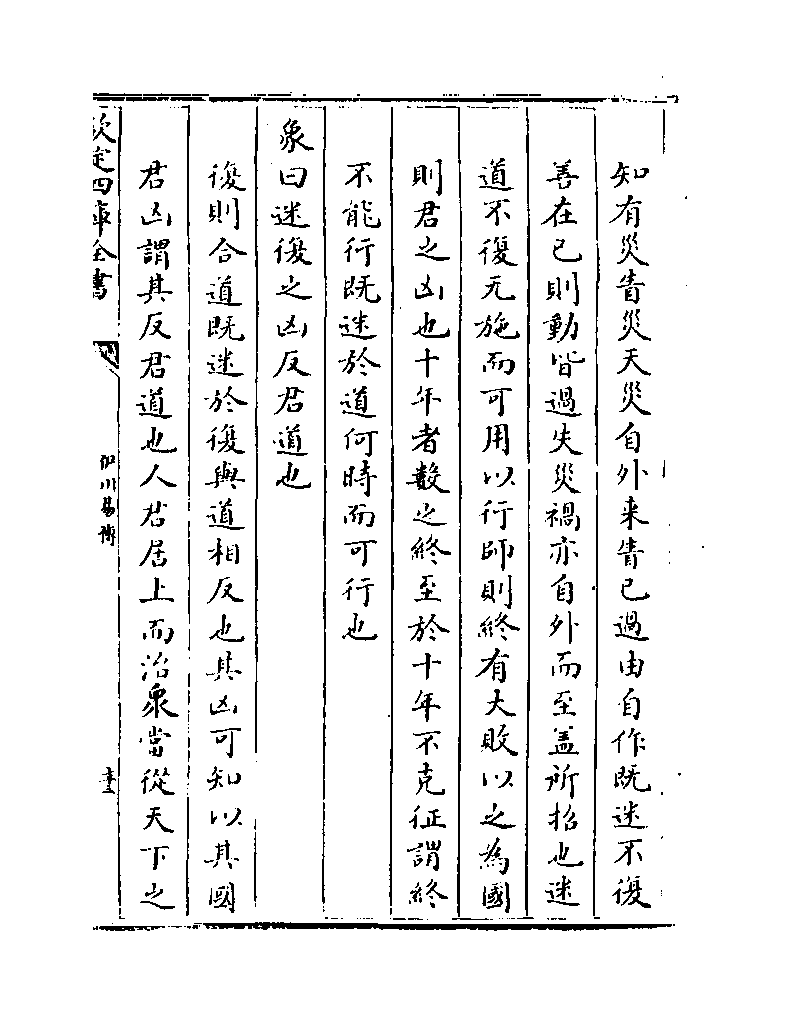 知有災眚災天災自外来眚已過由自作既迷不復
善在已則動皆過失災禍亦自外而至盖所招也迷
道不復无施而可用以行師則終有大敗以之為國
則君之凶也十年者數之終至於十年不克征謂終
不能行既迷於道何時而可行也
象曰迷復之凶反君道也
復則合道既迷於復與道相反也其凶可知以其國
君凶謂其反君道也人君居上而治衆當從天下之
欽定四庫全書
伊川易傳